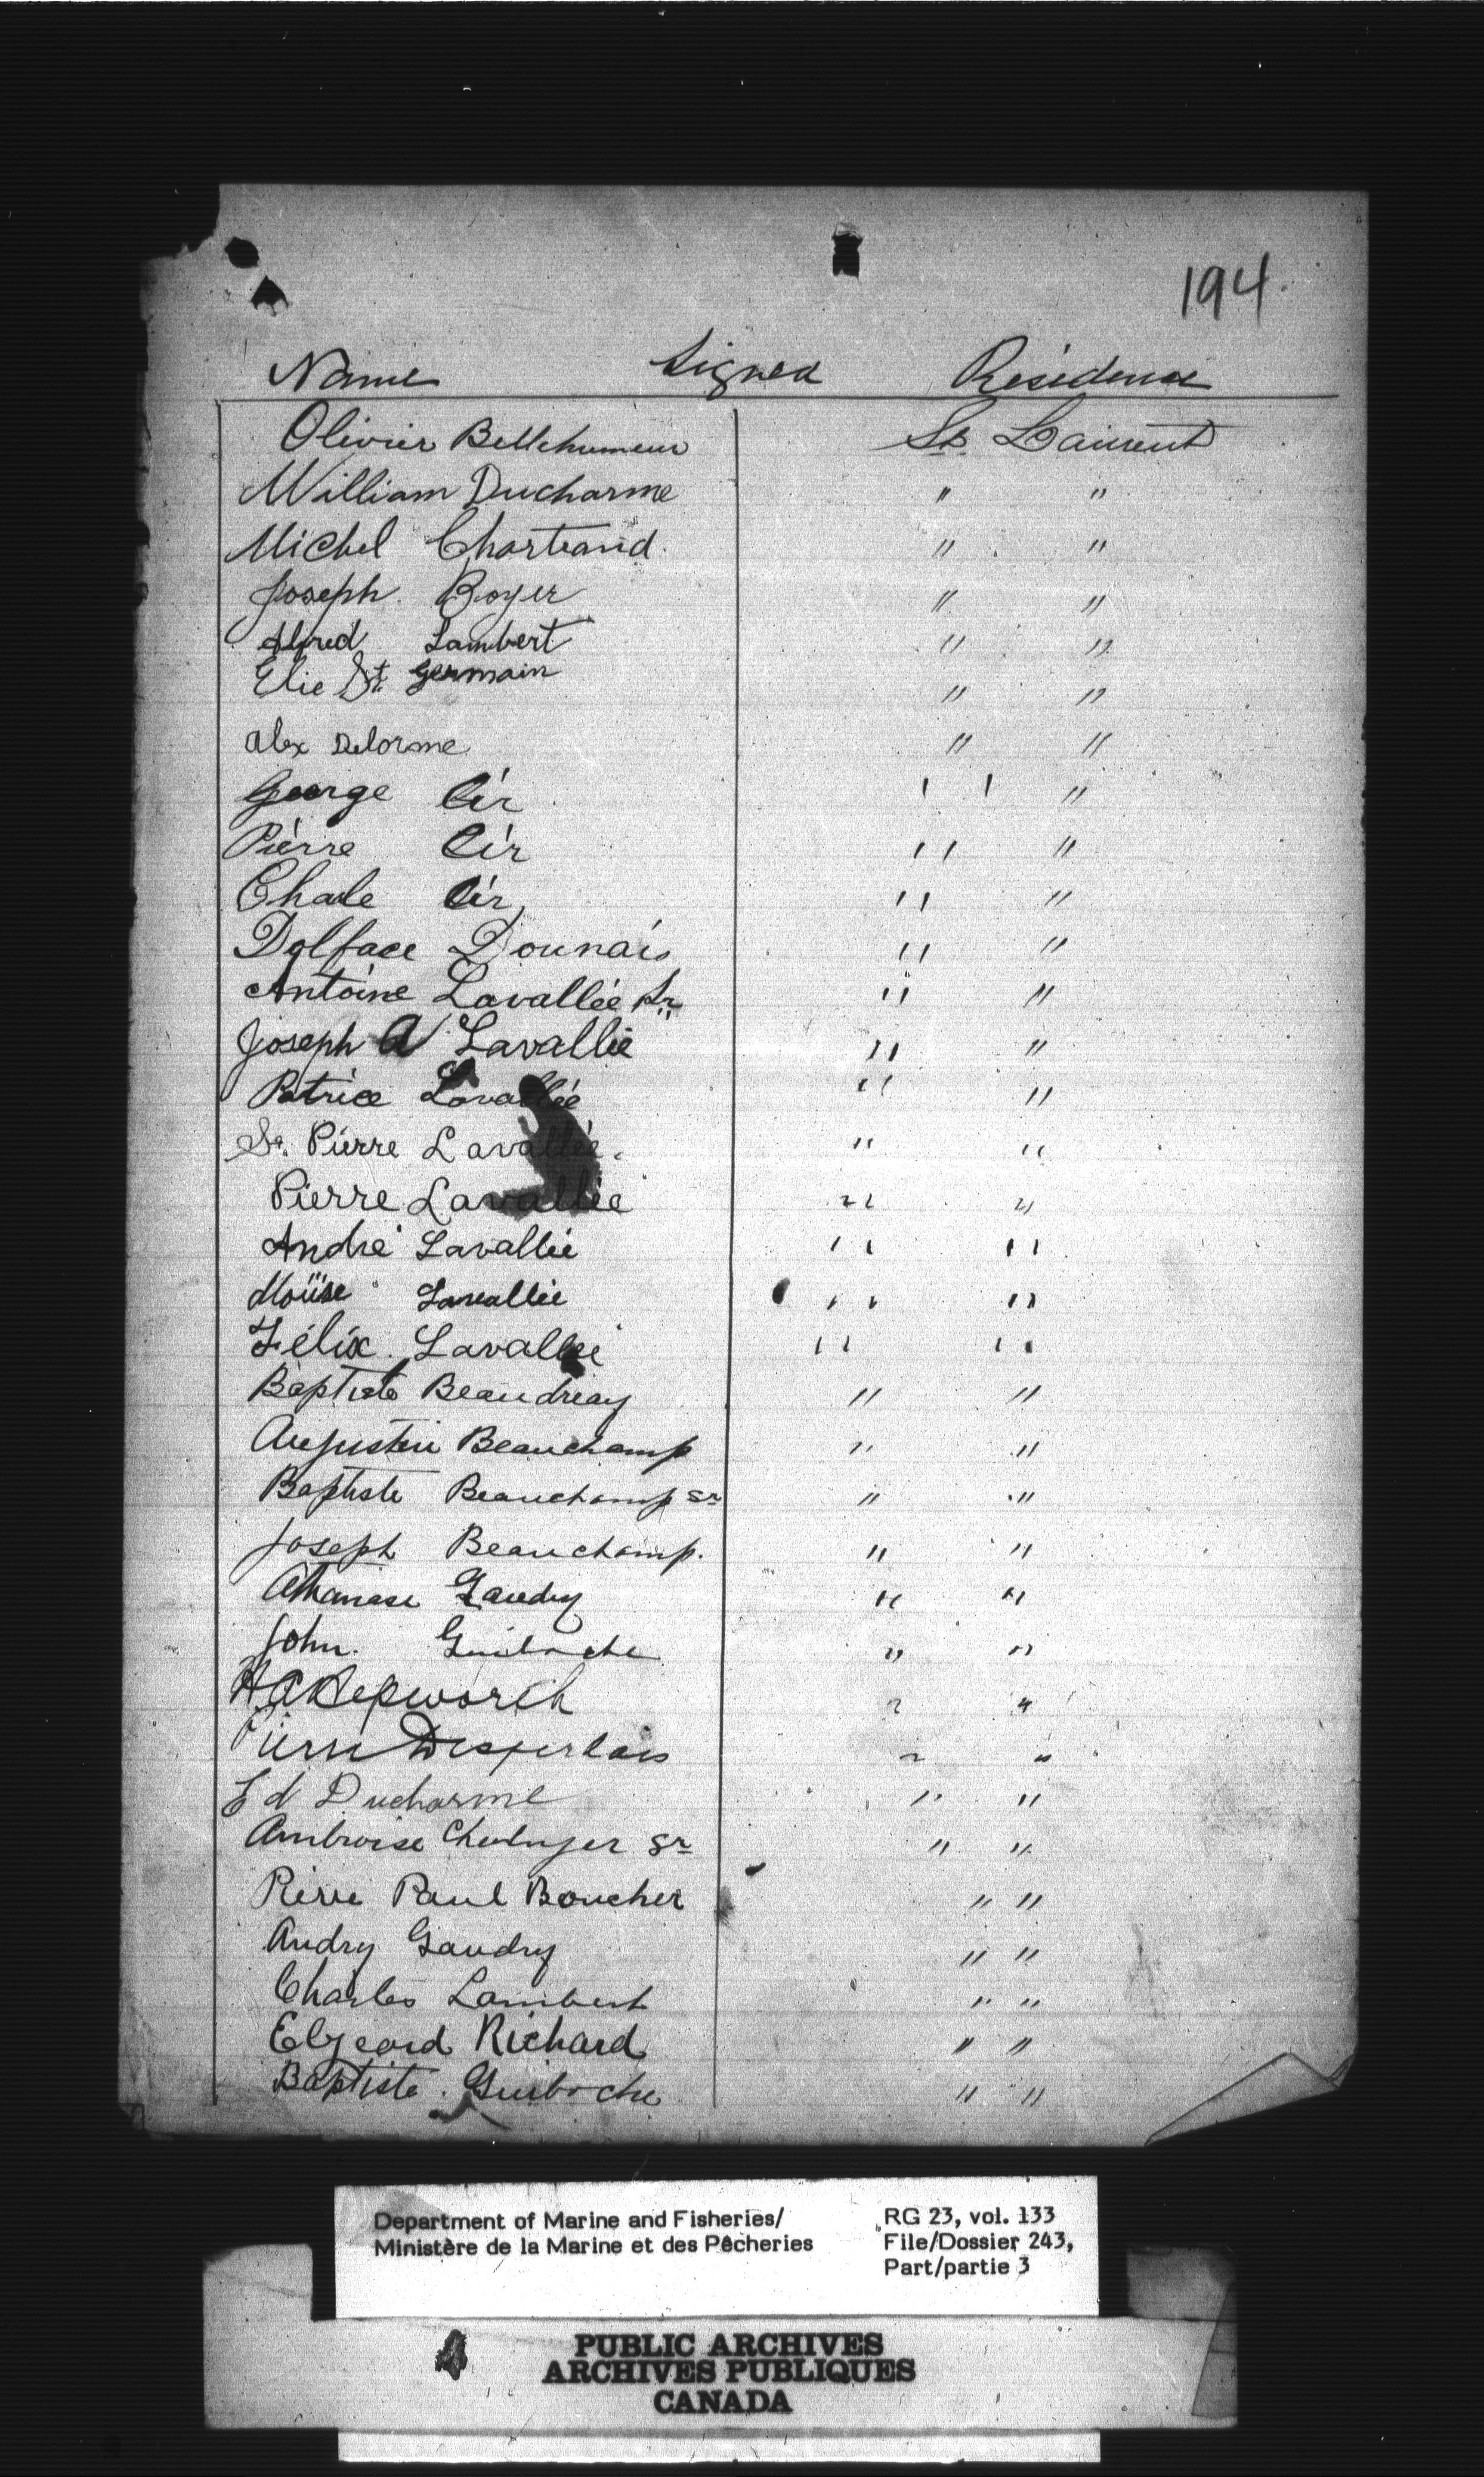 194.
Name Signed Résidence
Olivier Bellehumeur St. Laurent
William Ducharme " "
Michel Chartrand. " "
Joseph. Boyer " "
Alfred Lambert " "
Elie St. Germain " "
Alex Delorme " "
George Cír " "
Piérre Cír " "
Chale Cír " "
Dolface Dounais " "
Antoine Lavallée Sr. " "
Joseph A Lavallée " "
Patrice Lavallée " "
Sr. Pierre Lavallée. " "
Pierre Lavallée " "
André Lavallée " "
Moïse Lavallée " "
Félix. Lavallée " "
Baptiste Beaudreay " "
Augustin Beauchamp " "
Baptiste Beauchamp Sr " "
Joseph Beauchamp. " "
Athanase Gaudry " "
John. Guiboche " "
Hepworth " "
Pierre Desjerlais " "
Ed Ducharme " "
Ambroise Sr " "
Pierre Paul Boucher " "
Andry Gaudry " "
Charles Lambert " "
Elzeard Richard " "
Baptiste. Guiboche " "
Department of Marine and Fisheries/ RG 23, vol. 133
Ministère de la Marine et des Pêcheries File/Dossier 243,
Part/partie 3
PUBLIC ARCHIVES
ARCHIVES PUBLIQUES
CANADA